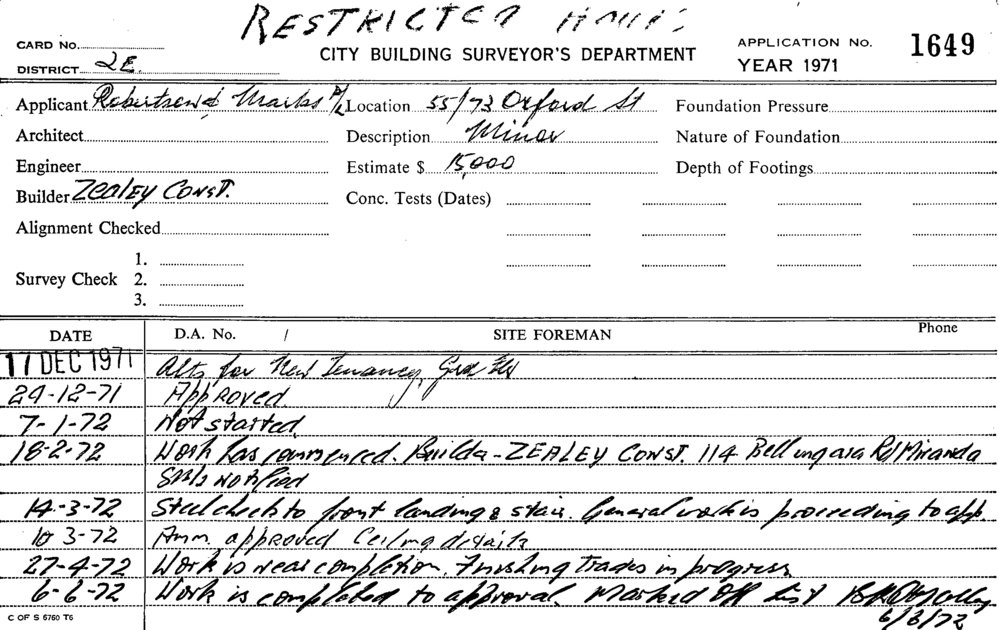 RESTRICTED
CARD No.
CITY BUILDING SURVEYOR'S DEPARTMENT
APPLICATION No. 1649
DISTRICT 2E.
YEAR 1971
Applicant Robertson & Marks P/L Location 55/73 Oxford St Foundation Pressure
Architect Description Minor Nature of Foundation
Engineer Estimate $ 15,000 Depth of Footings
Builder Zealey Const. Conc. Tests (Dates)
Alignment Checked
1.
Survey Check 2.
3.
DATE D.A. No. / SITE FOREMAN Phone
17 DEC 1971 Alts for New Tenancy, Grd Flr
29-12-71 Approved
7-1-72 Not started
18-2-72 Work has commenced. Builda - ZEALEY CONST. 114 Bellingara Rd Miranda
notified
14-3-72 Steel check to front landing & stair. General work is proceeding to app.
10 3-72 Amm. approved Ceiling details
27-4-72 Work is near completion. Finishing Trades in progress
6-6-72 Work is completed to approval. Marked Off List
C OF S 6760 T6